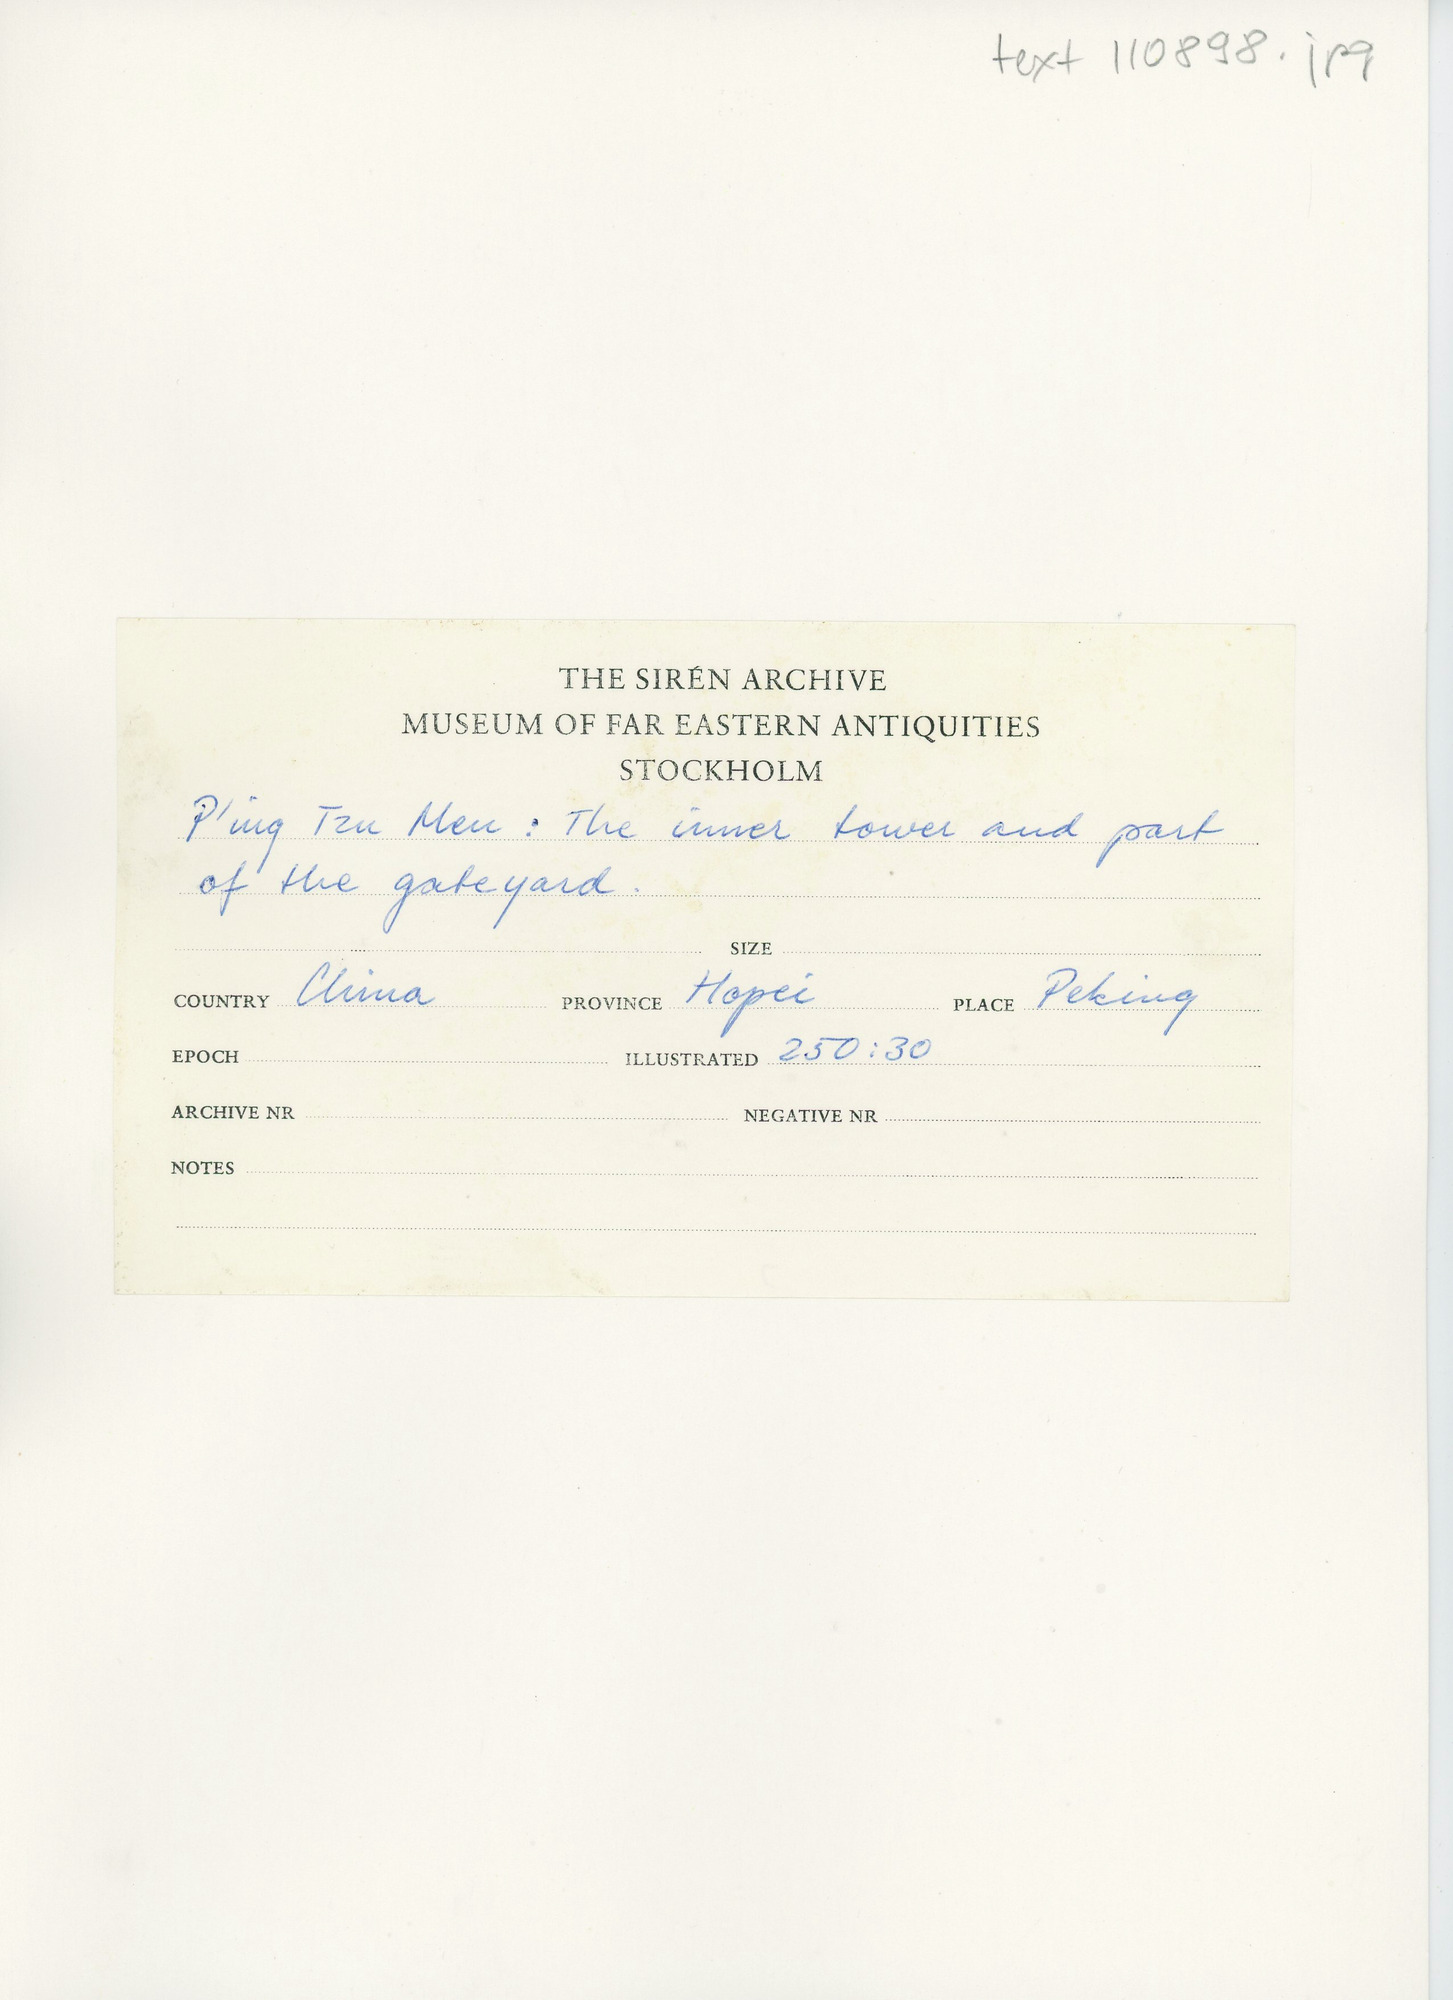 text 110898.jpg
THE SIRÉN ARCHIVE
MUSEUM OF FAR EASTERN ANTIQUITIES
STOCKHOLM
P'ing Tzu Men : The inner tower and part
of the gateyard.
SIZE
COUNTRY China PROVINCE Hopei PLACE Peking
EPOCH ILLUSTRATED 250:30
ARCHIVE NR NEGATIVE NR
NOTES